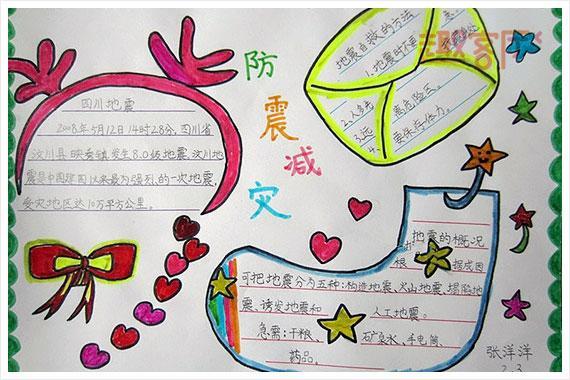 四川地震
2008年5月12日14时28分,四川省
汶川县映秀镇发生8.0级地震,汶川地
震是中国建国以来最为强烈的一次地震,
受灾地区达10万平方公里。
防
震
减
灾
地震自救的方法
1.地震时不要
2.人多先
离危险区。
3.远
4.要保存体力。
地震的概况
根据成因
可把地震分为五种:构造地震、火山地震、塌陷地
震、诱发地震和人工地震。
急需:干粮、矿泉水、手电筒
药品。
张洋洋
2.3
趣客网